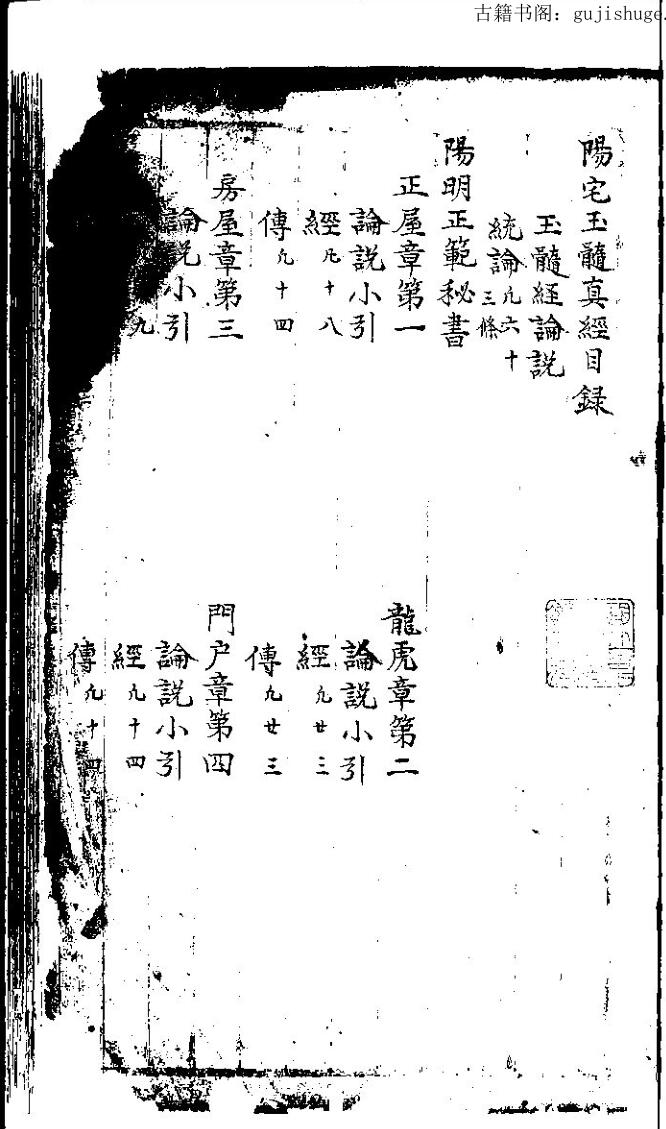 古籍书阁：gujishuge.
陽宅玉髓真經目録
玉髓经論説
統論凡六十三條
陽明正範秘書
正屋章第一
論説小引
經凡十八
傳凡十四
龍虎章第二
論説小引
經凡廿三
傳凡廿三
房屋章第三
論説小引
凡
門户章第四
論説小引
經凡十四
傳凡十四